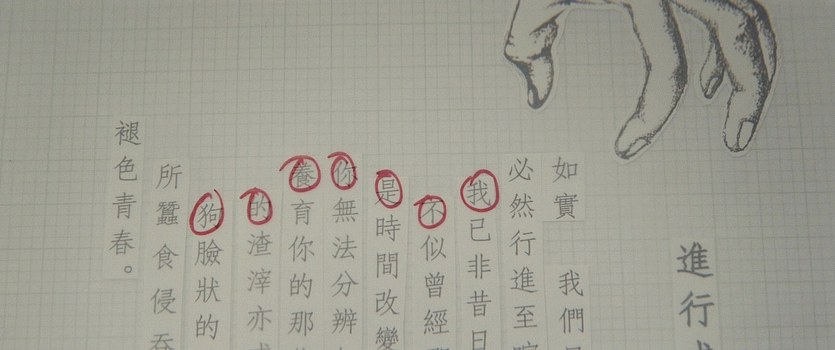 進行
如實 我們
必然行進至
我已非昔日
不似曾經
是時間改變
你無法分辨
養育你的那
的渣滓亦
狗臉狀的
所蠶食侵吞
褪色青春。